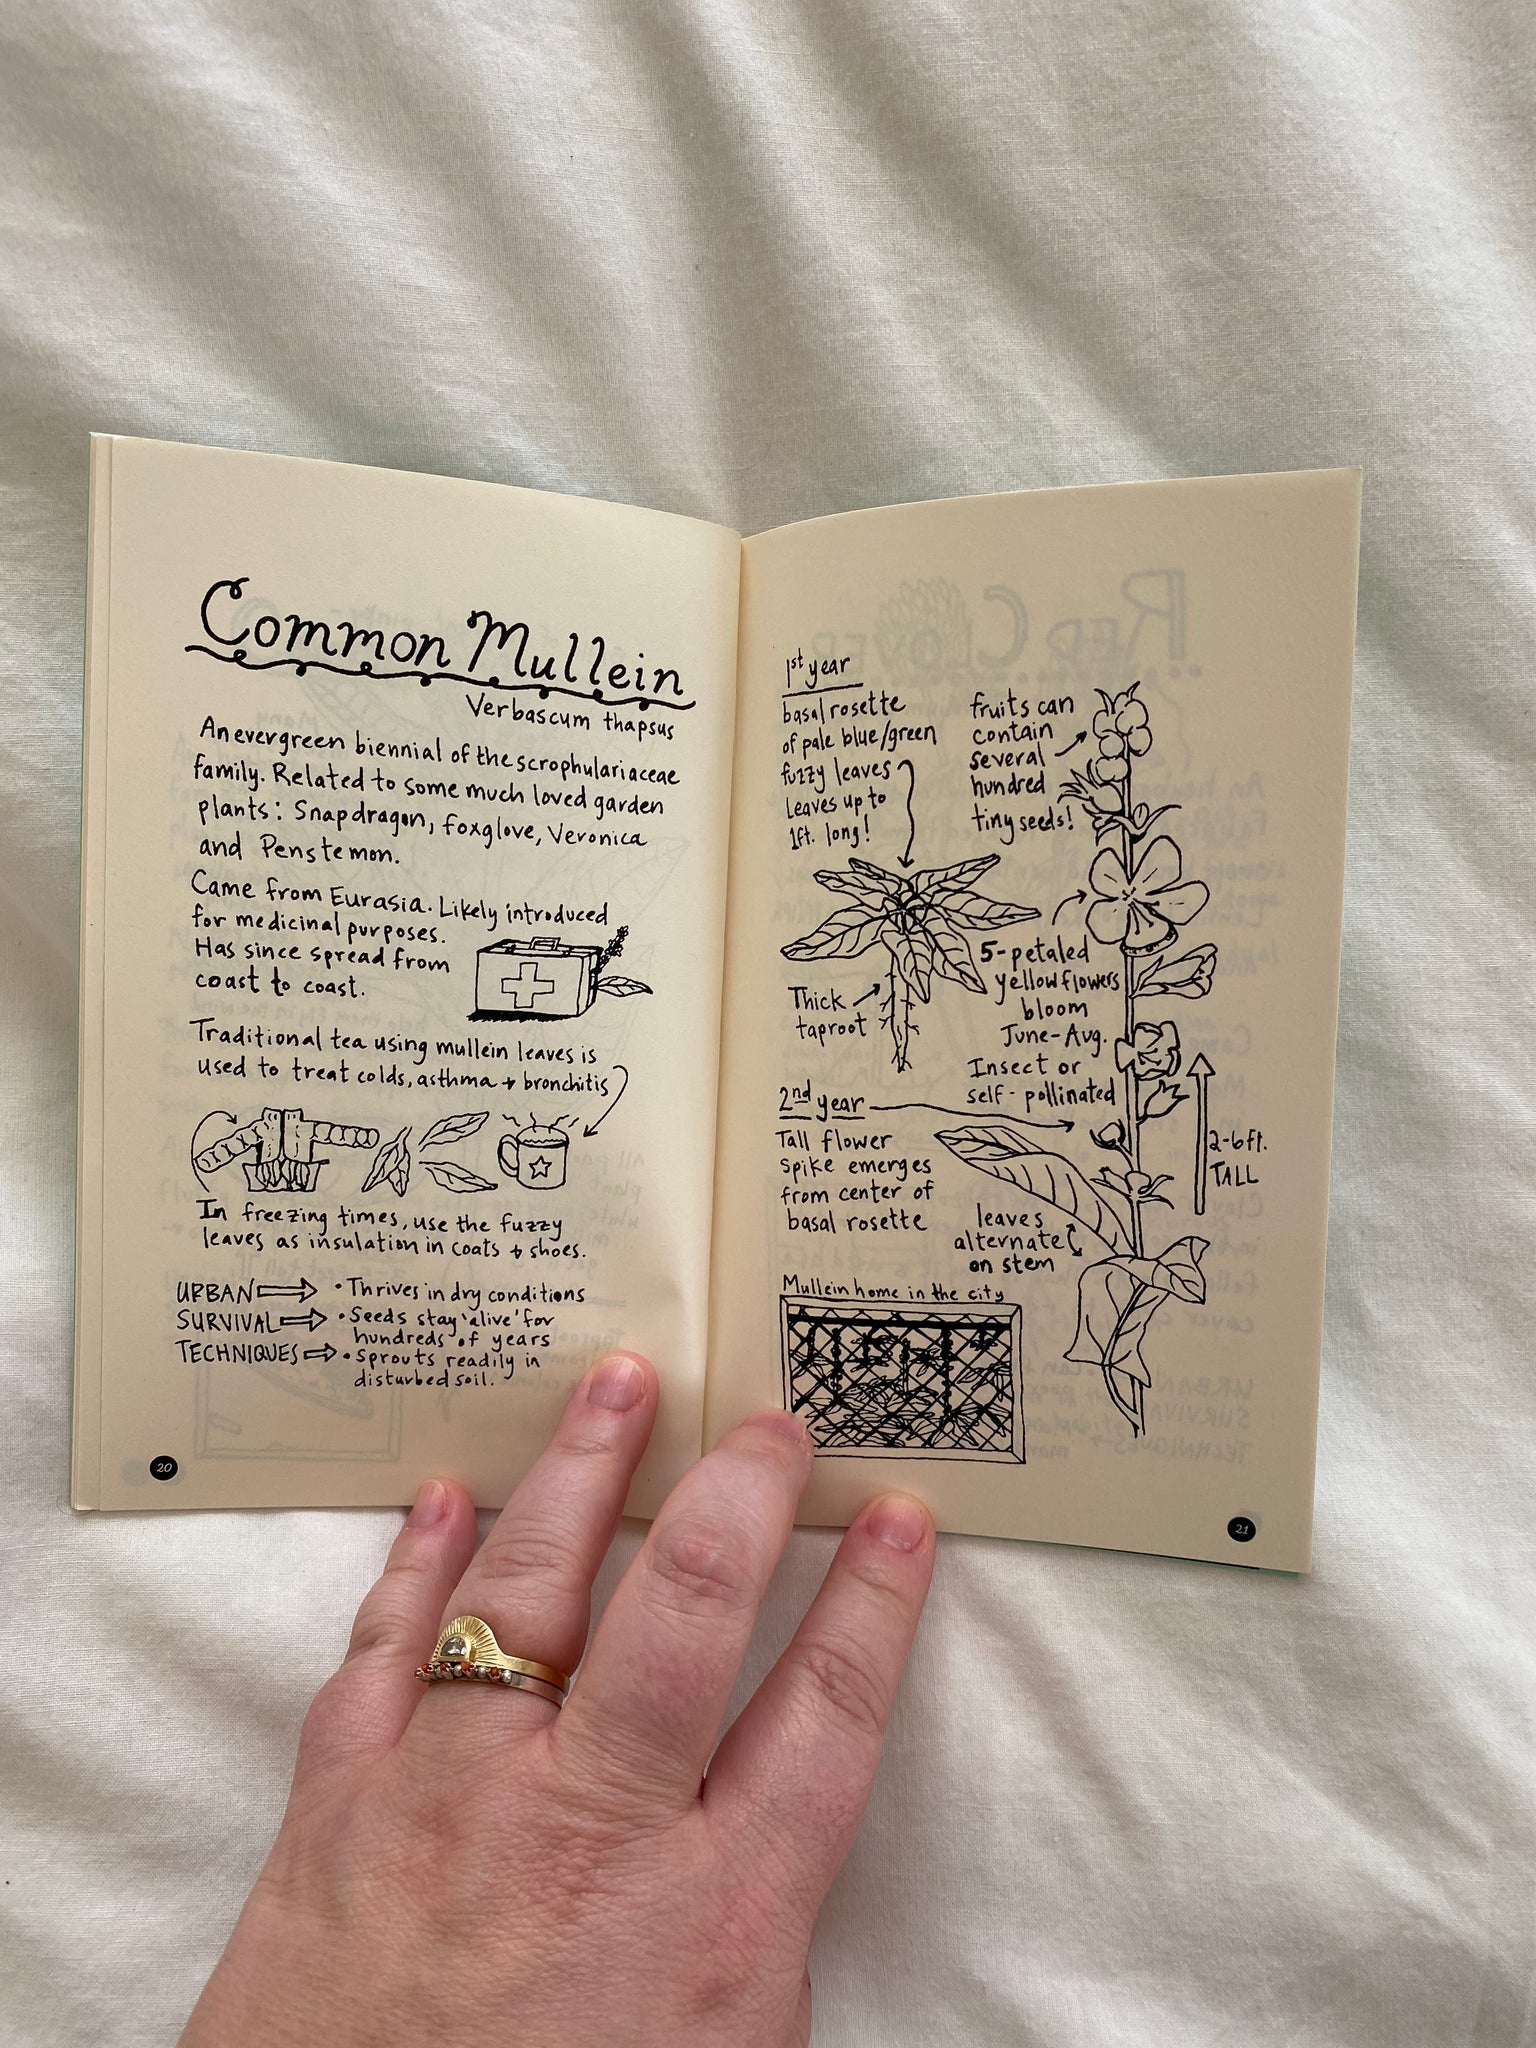 Common Mullein
Verbascum thapsus
An evergreen biennial of the scrophulariaceae
family. Related to some much loved garden
plants: Snapdragon, foxglove, Veronica
and Penstemon.
Came from Eurasia. Likely introduced
for medicinal purposes.
Has since spread from
coast to coast.
Traditional tea using mullein leaves is
used to treat colds, asthma + bronchitis
In freezing times, use the fuzzy
leaves as insulation in coats + shoes.
URBAN
SURVIVAL
TECHNIQUES
• Thrives in dry conditions
• Seeds stay 'alive' for
hundreds of years
• Sprouts readily in
disturbed soil.
20
1st year
basal rosette
of pale blue/green
fuzzy leaves
leaves up to
1ft. long!
fruits can
contain
several
hundred
tiny seeds!
Thick
taproot
5-petaled
yellow flowers
bloom
June-Aug.
Insect or
self-pollinated
2nd year
Tall flower
spike emerges
from center of
basal rosette
2-6ft.
TALL
leaves
alternate
on stem
Mullein home in the city
21